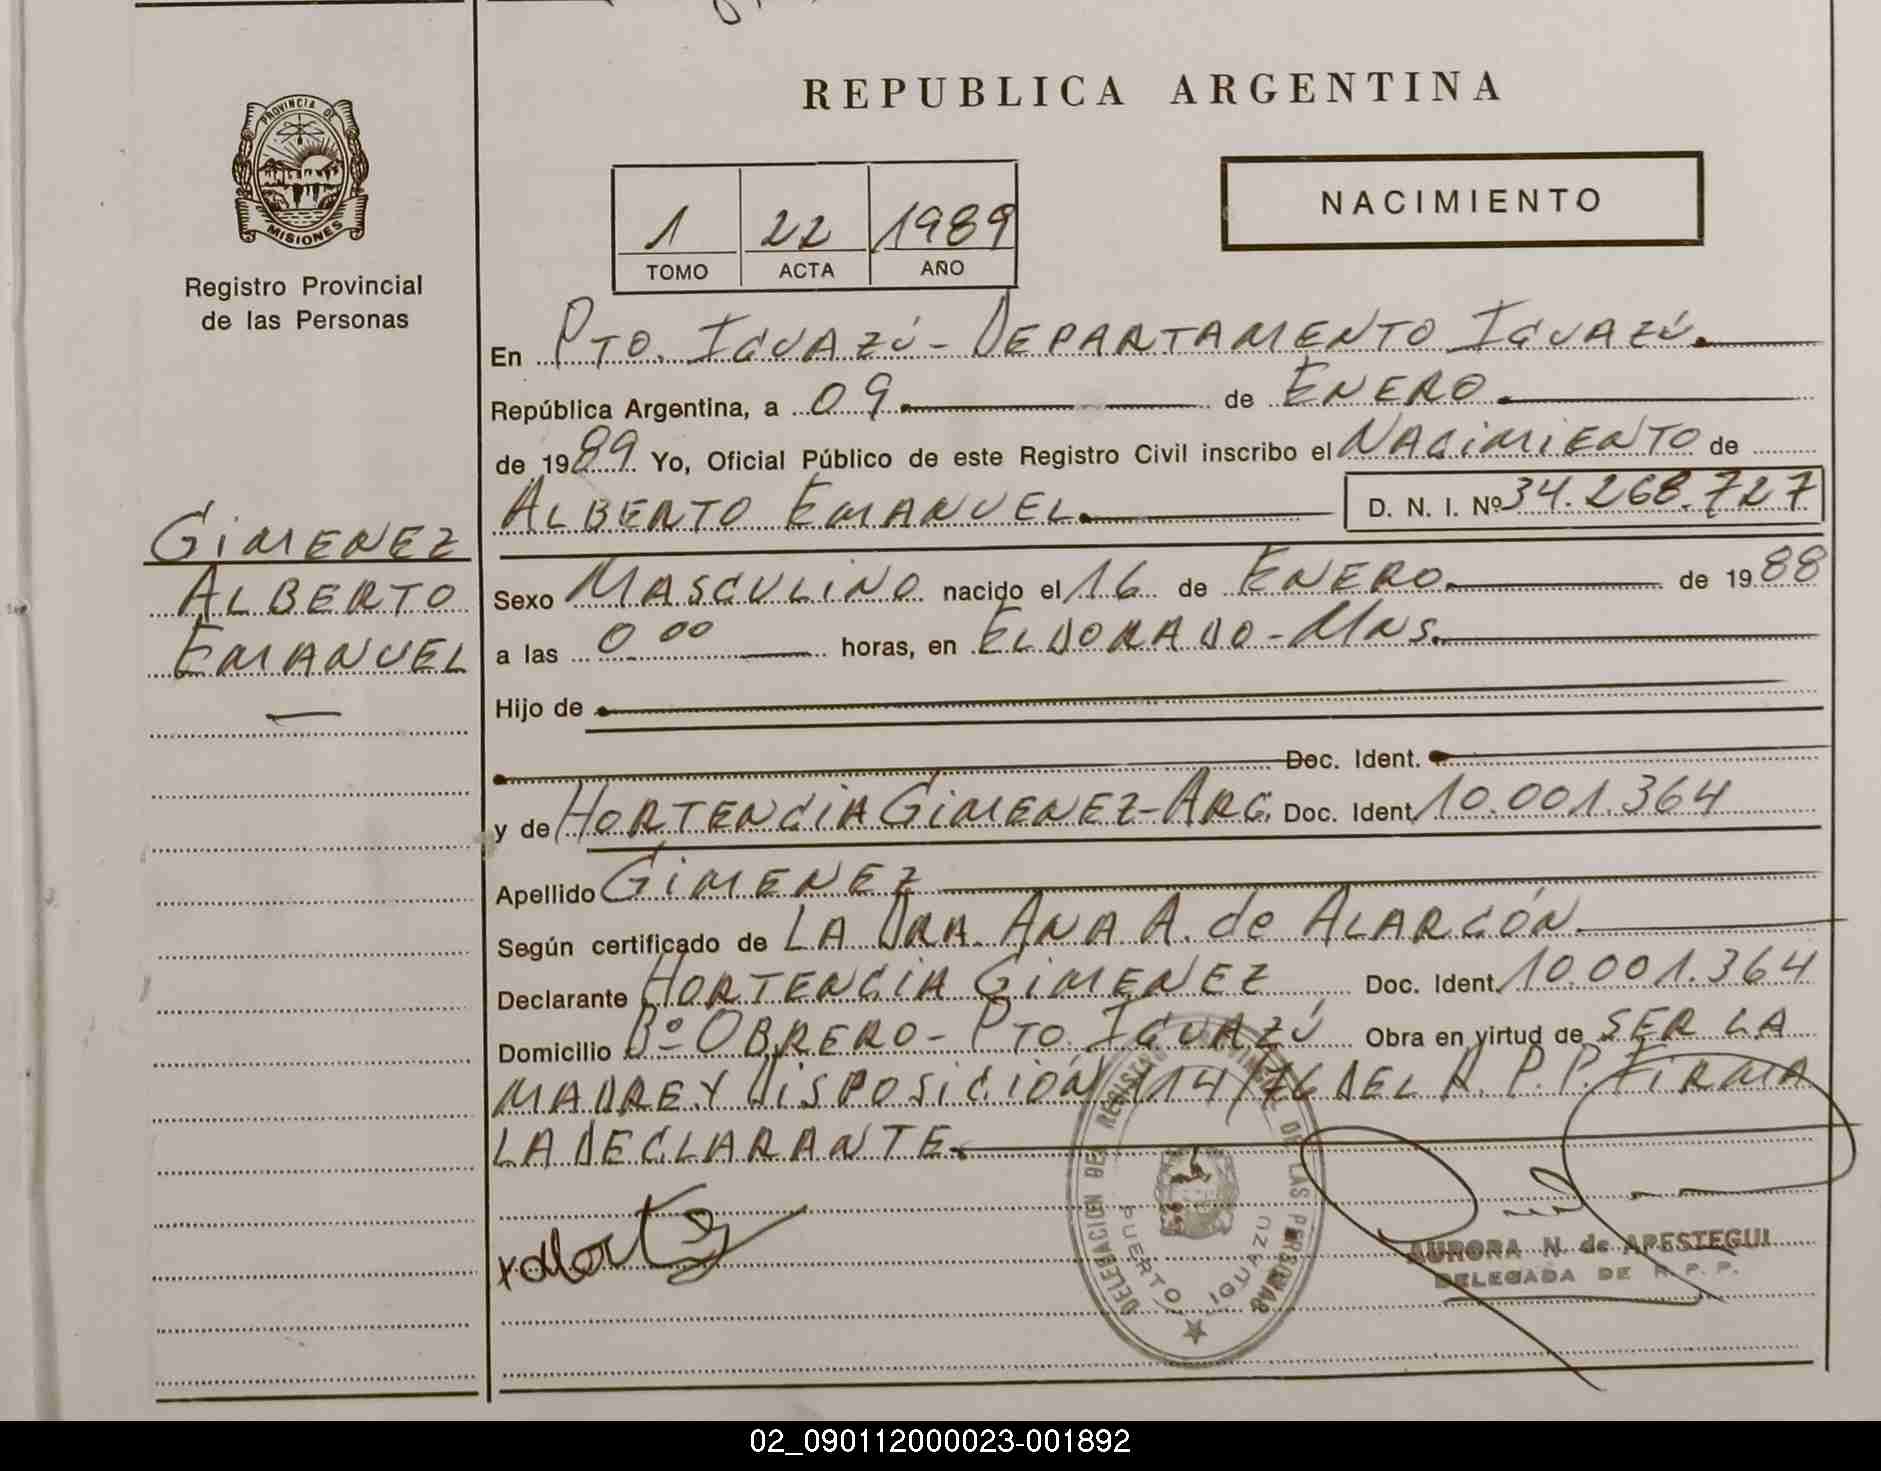 REPUBLICA ARGENTINA
PROVINCIA DE
MISIONES
Registro Provincial
de las Personas
1 22 1989
TOMO ACTA AÑO
NACIMIENTO
En PTO. IGUAZÚ - DEPARTAMENTO IGUAZÚ.
República Argentina, a 09 de ENERO
de 1989 Yo, Oficial Público de este Registro Civil inscribo el NACIMIENTO de
ALBERTO EMANUEL D. N. I. Nº 34.268.727
GIMENEZ
ALBERTO
EMANUEL
Sexo MASCULINO nacido el 16 de ENERO de 1988
a las 0 00 horas, en ELDORADO - MNS.
Hijo de
Doc. Ident.
y de HORTENCIA GIMENEZ - ARG. Doc. Ident. 10.001.364
Apellido GIMENEZ
Según certificado de LA DRA. ANA A. de ALARCÓN.
Declarante HORTENCIA GIMENEZ Doc. Ident. 10.001.364
Domicilio Bº OBRERO - PTO. IGUAZÚ Obra en virtud de SER LA
MADRE Y DISPOSICIÓN 114/76 DEL R. P. P. FIRMA
LA DECLARANTE.
DELEGACION DEL REGISTRO PROVINCIAL DE LAS PERSONAS
PUERTO IGUAZU
AURORA N. de APESTEGUI
DELEGADA DE R. P. P.
02_090112000023-001892